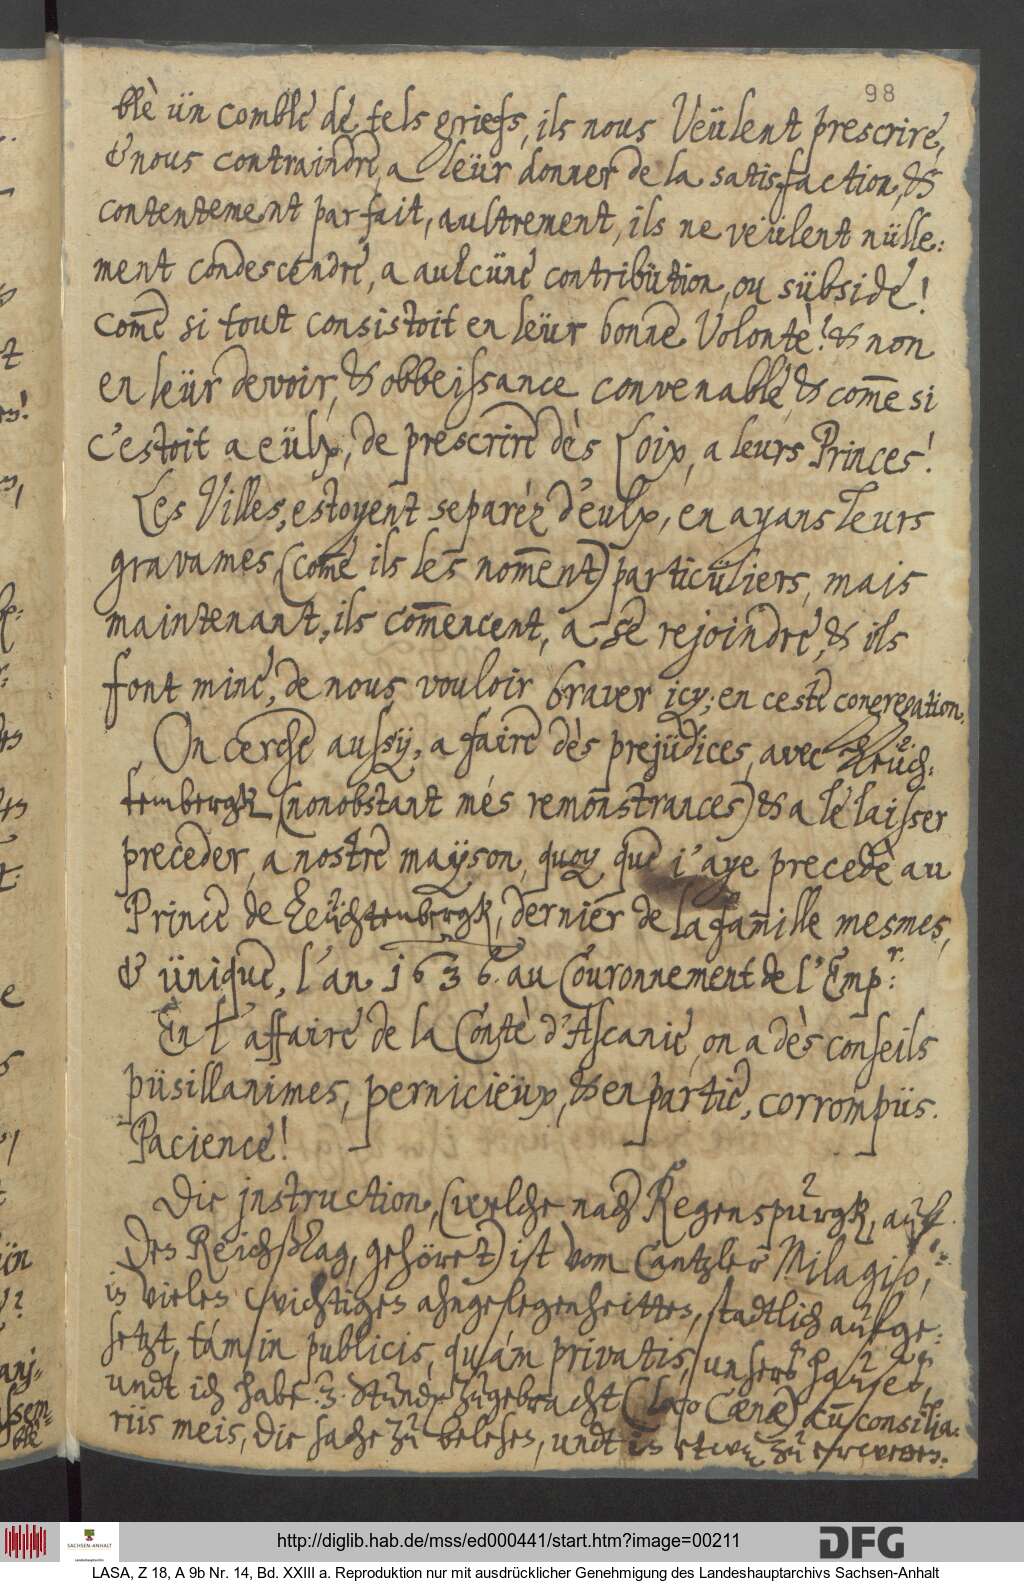 98
blè ün comblé de tels griefs, ils nous Veülent prescrire,
& nous contraindre, a leür donner de la satisfaction, &
contentement parfait, aultrement, ils ne veülent nülle:
ment condescendre, a aulcüne contribütion, ou sübside!
com̅e si tout consistoit en leür bonne Volontè! & non
en leür devoir, & obbeissance convenable, & com̅e si
c'estoit a eülx, de prescrire dès Loix, a leurs Princes!
Les Villes, estoyent separéz d'eulx, en ayans leurs
gravames, (com̅e ils les nom̅ent) particüliers, mais
maintenant, ils com̅encent, a se rejoindre, & ils
font mine, de nous vouloir braver icy, en ceste congregation.
On cerche aussÿ, a faire dès prejüdices, avec Leüch:
tembergk (nonobstant més remonstrances) & a le laisser
preceder, a nostre maÿson, quoy que j'aye precedè au
Prince de Leüchtembergk, dernier de la famille mesmes,
& ünique, l'an 1636. au Couronnement de l'Emp.r:
En l'affaire de la Contè d'Ascanie, on a dès conseils
püsillanimes, pernicieüx, & en partie, corrompüs.
Pacience!
Die jnstruction, (welche nach Regenspurgk, auf
des Reichstag, gehöret) ist vom Cantzler Milagio,
in vielen wichtigen ahngelegenheitten, stadtlich aufge:
setzt, tám in publicis, quám privatis, unsers hauses,
undt ich habe 3. Stunden zugebracht (Cænæ) cum consilia:
riis meis, die sache zu belesen, undt in etwas zu
nj=
sem=
ble
http://diglib.hab.de/mss/ed000441/start.htm?image=00211
DFG
SACHSEN-ANHALT
LASA, Z 18, A 9b Nr. 14, Bd. XXIII a. Reproduktion nur mit ausdrücklicher Genehmigung des Landeshauptarchivs Sachsen-Anhalt